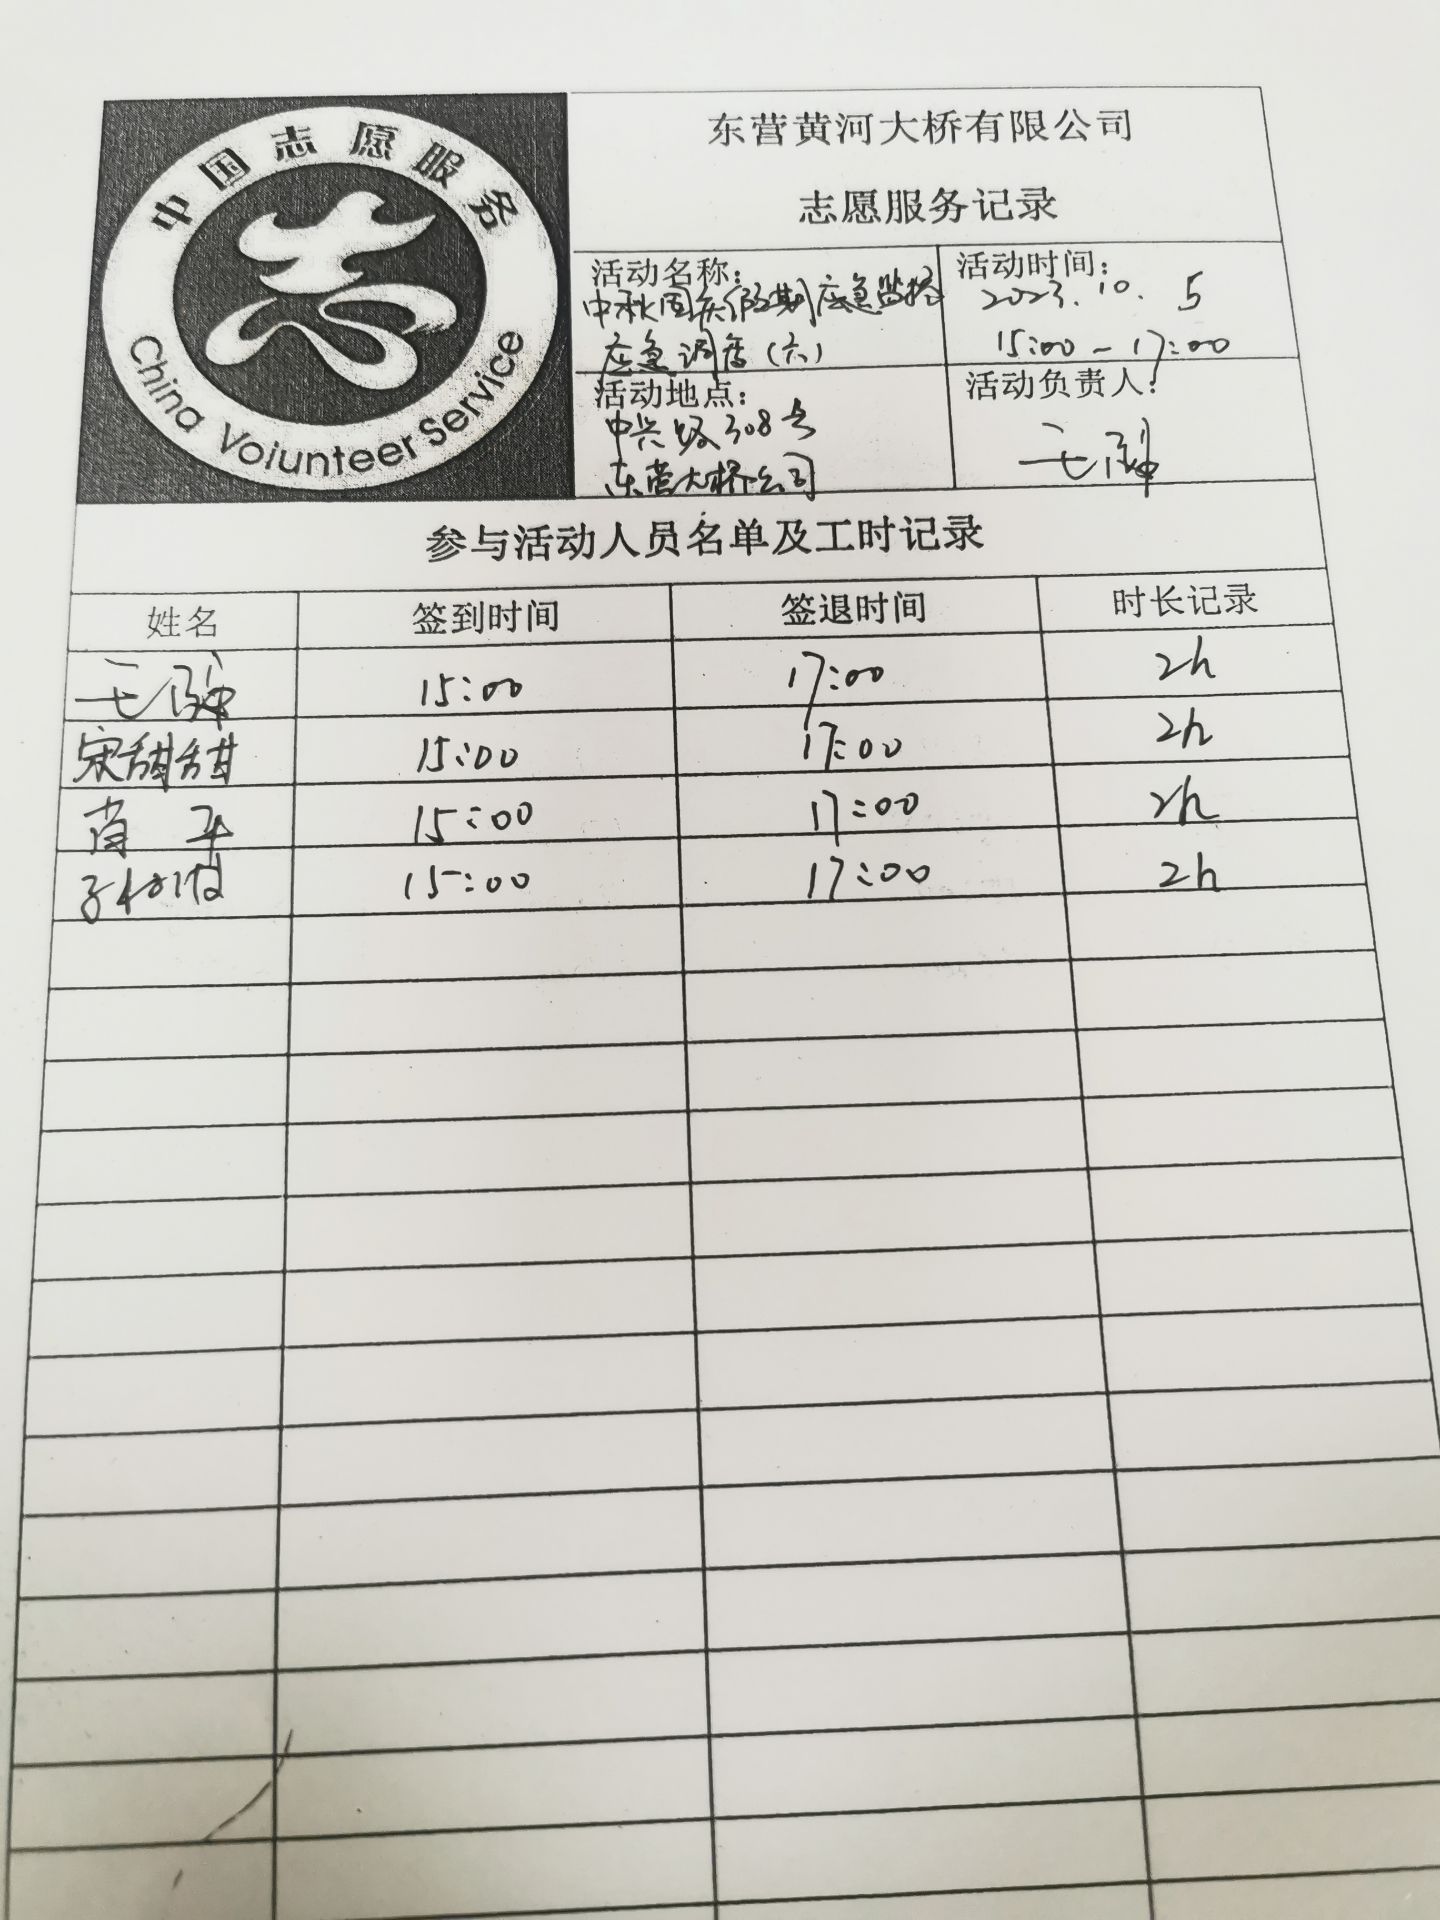 中国志愿服务
China Voiunteer Service
东营黄河大桥有限公司
志愿服务记录
活动名称:
中秋国庆假期应急监控
应急调度(六)
活动时间:
2023.10.5
15:00-17:00
活动地点:
中兴路308号
东营大桥公司
活动负责人:
参与活动人员名单及工时记录
姓名 签到时间 签退时间 时长记录
15:00 17:00 2h
宋甜甜 15:00 17:00 2h
肖平 15:00 17:00 2h
15:00 17:00 2h